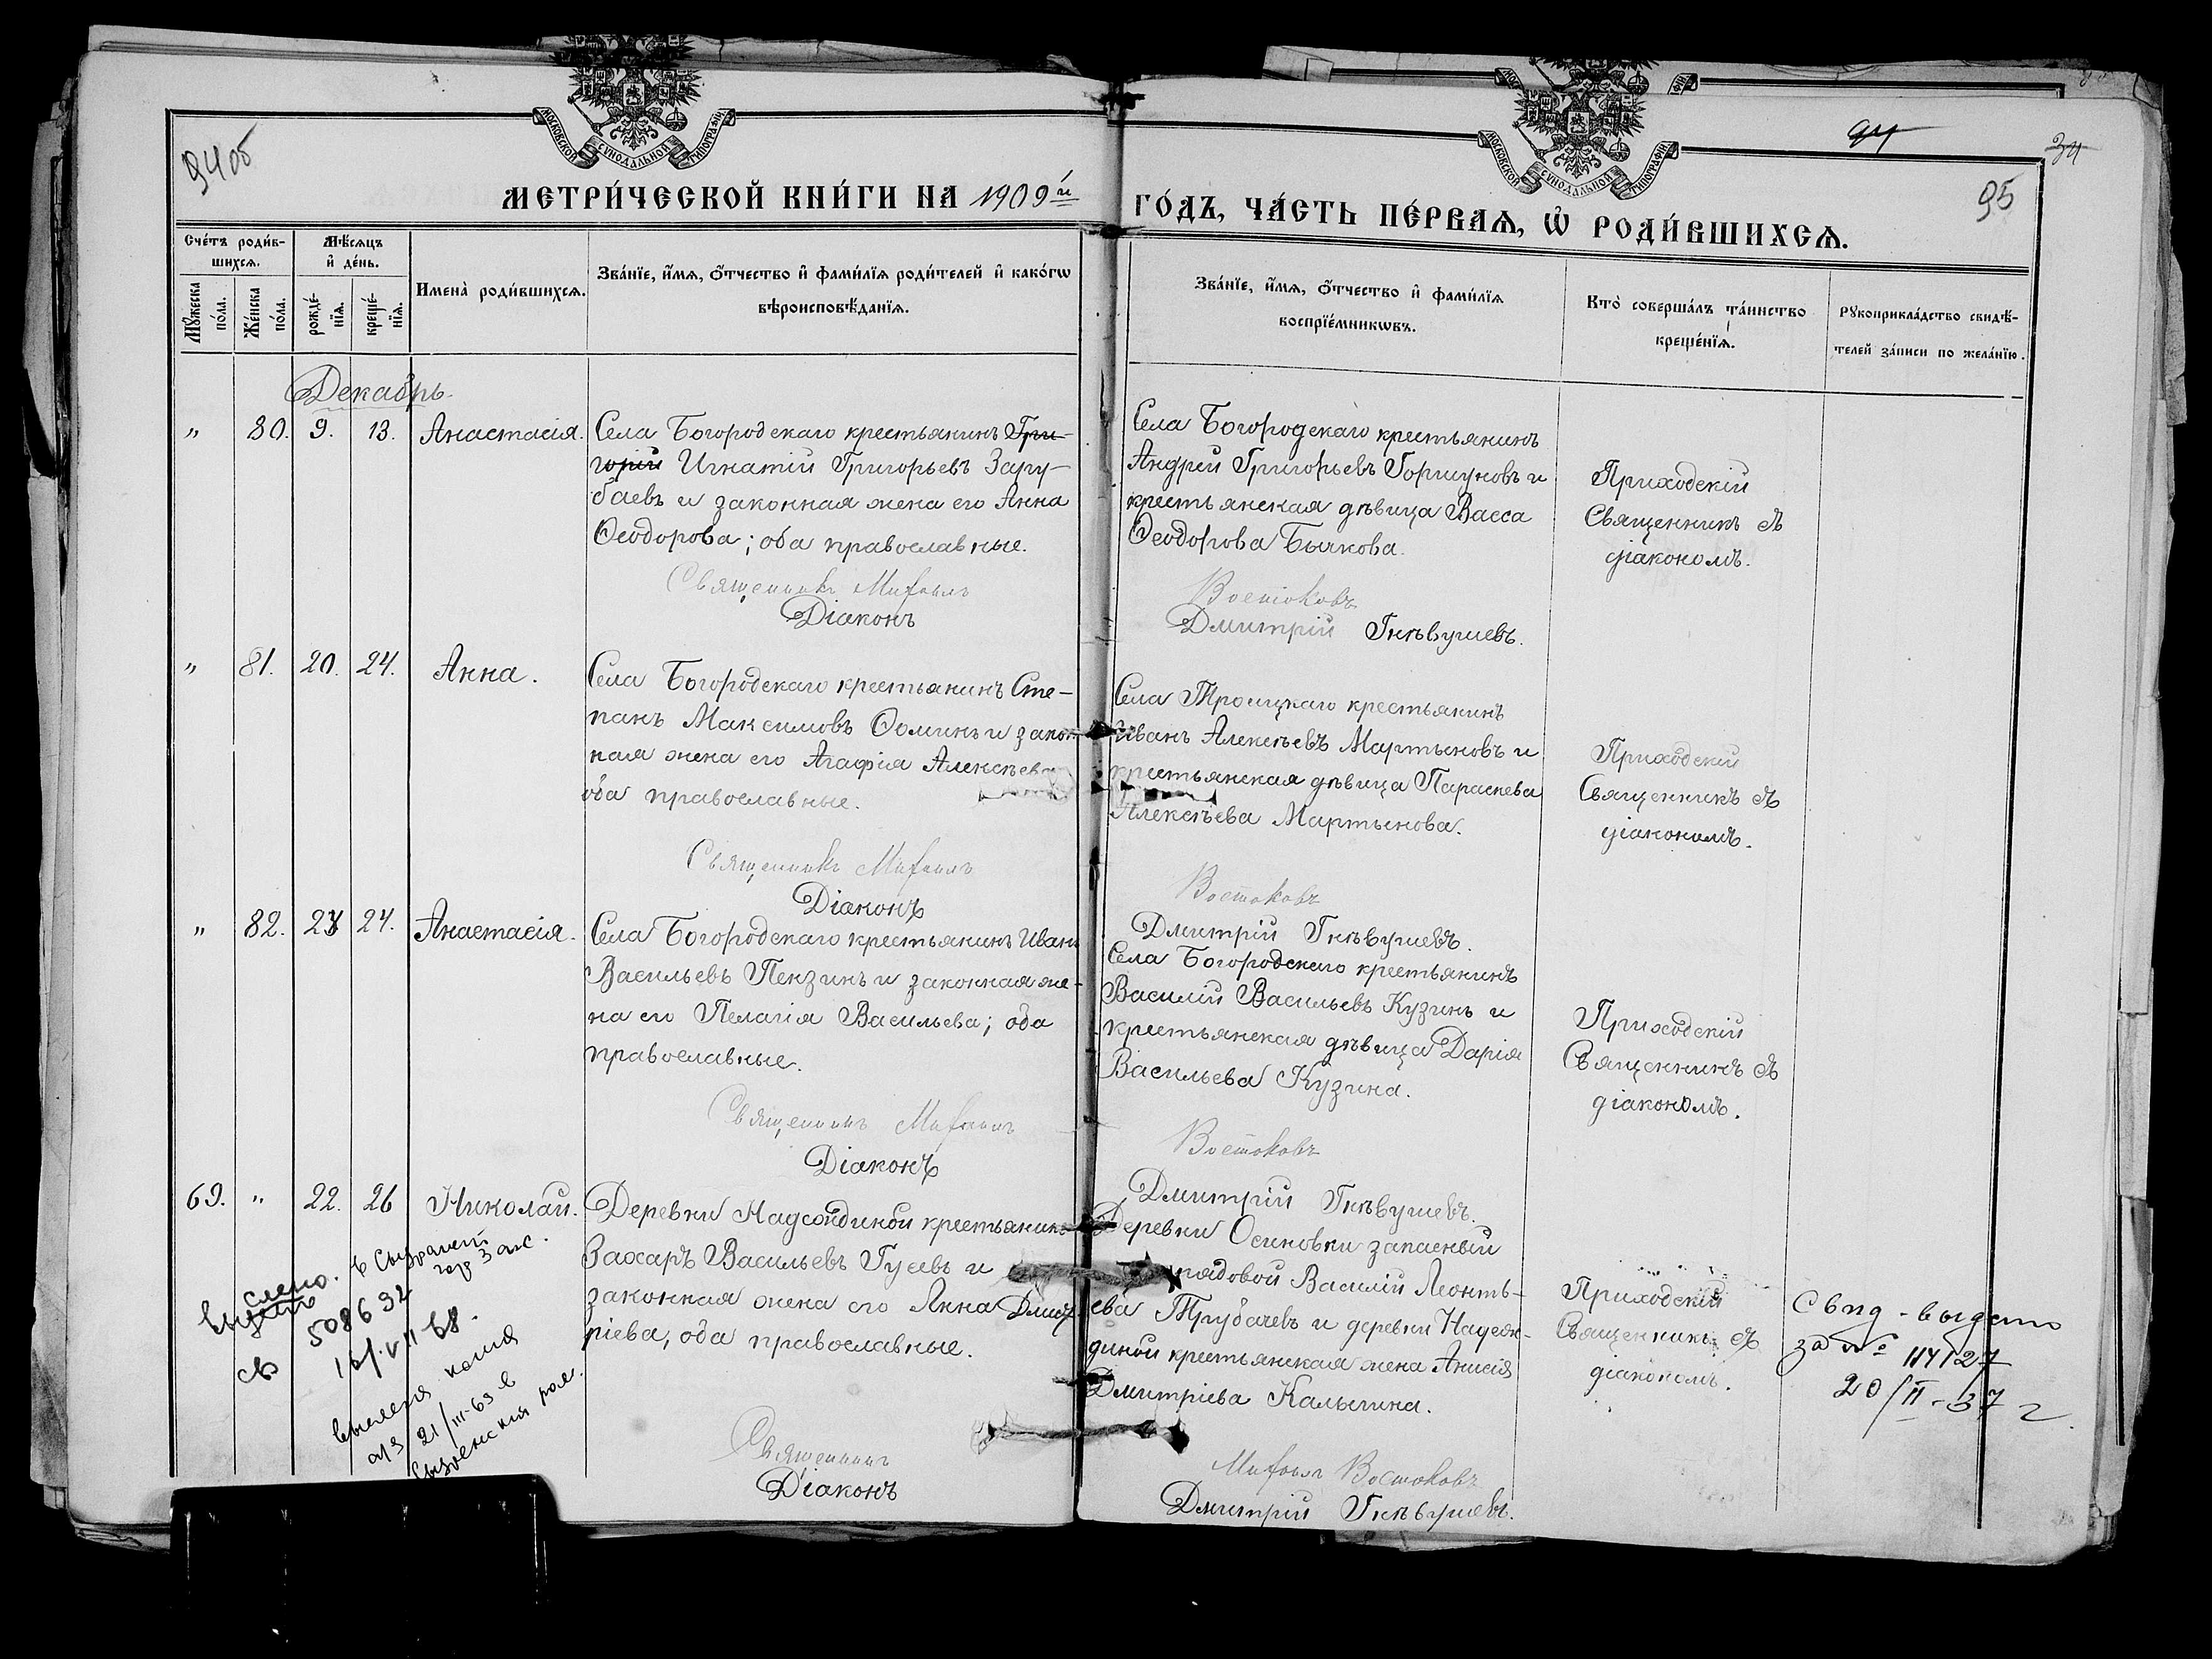 МОСКОВСКОЙ СУНОДАЛЬНОЙ ТИПОГРАФІИ
МОСКОВСКОЙ СУНОДАЛЬНОЙ ТИПОГРАФІИ
94об
94
34
95
МЕТРИ́ЧЕСКОЙ КНИ́ГИ НА 1909й
ГО́ДЪ, ЧА́СТЬ ПЕ́РВАѦ, Ѡ҆ РОДИ́ВШИХСѦ.
Сче́тъ роди́в-
шихсѧ.
Мѣ́сѧцъ
и҆ де́нь.
Мꙋ́жеска
по́ла.
Же́нска
по́ла.
рожде́-
нїѧ.
креще́-
нїѧ.
Имена̀ роди́вшихсѧ.
Зва́нїе, и҆́мѧ, ѻ҆́тчество и҆ фами́лїѧ роди́телей и҆ како́гѡ
вѣроисповѣ́данїѧ.
Зва́нїе, и҆́мѧ, ѻ҆́тчество и҆ фами́лїѧ
воспрїе́мникѡвъ.
Кто̀ соверша́лъ та́инство
креще́нїѧ.
Рꙋкоприкла́дство свидѣ́-
телей за́писи по жела́нїю.
Декабрь.
„ 80. 9. 13. Анастасія.
Села Богородскаго крестьянинъ Гри-
горій Игнатій Григорьевъ Зару-
баевъ и законная жена его Анна
Ѳеодорова; оба православные.
Священникъ Михаилъ
Діаконъ
Села Богородскаго крестьянинъ
Андрей Григорьевъ Горшуновъ и
крестьянская дѣвица Васса
Ѳеодорова Бычкова.
Востоковъ
Дмитрій Гнѣвушевъ.
Приходскій
Священникъ съ
діакономъ.
„ 81. 20. 24. Анна.
Села Богородскаго крестьянинъ Сте-
панъ Максимовъ Ѳоминъ и закон
ная жена его Агафія Алексѣева
оба православные.
Священникъ Михаилъ
Діаконъ
Села Троицкаго крестьянинъ
Иванъ Алексѣевъ Мартыновъ и
крестьянская дѣвица Параскева
Алексѣева Мартынова.
Востоковъ
Дмитрій Гнѣвушевъ.
Приходскій
Священникъ съ
діакономъ.
„ 82. 24. Анастасія.
Села Богородскаго крестьянинъ Иванъ
Васильевъ Пензинъ и законная же-
на его Пелагія Васильева; оба
православные.
Священникъ Михаилъ
Діаконъ
Села Богородскаго крестьянинъ
Василій Васильевъ Кузинъ и
крестьянская дѣвица Дарія
Васильева Кузина.
Востоковъ
Дмитрій Гнѣвушевъ.
Приходскій
Священникъ съ
діакономъ.
69. „ 22. 26 Николай.
Деревни крестьянинъ
Захаръ Васильевъ Гусевъ и
законная жена его Анна Дмит-
ріева, оба православные.
Священникъ
Діаконъ
Деревни Осиновки запасный
рядовой Василій Леонть-
евъ Трубачевъ и деревни Надеж-
диной крестьянская жена Анисія
Дмитріева Калыгина.
Михаилъ Востоковъ
Дмитрій Гнѣвушевъ.
Приходскій
Священникъ съ
діакономъ.
Свид-выдано
за № 114127
20/II-37 г.
св 508632
16/VII 68.
выслана копия
21/III-63 в